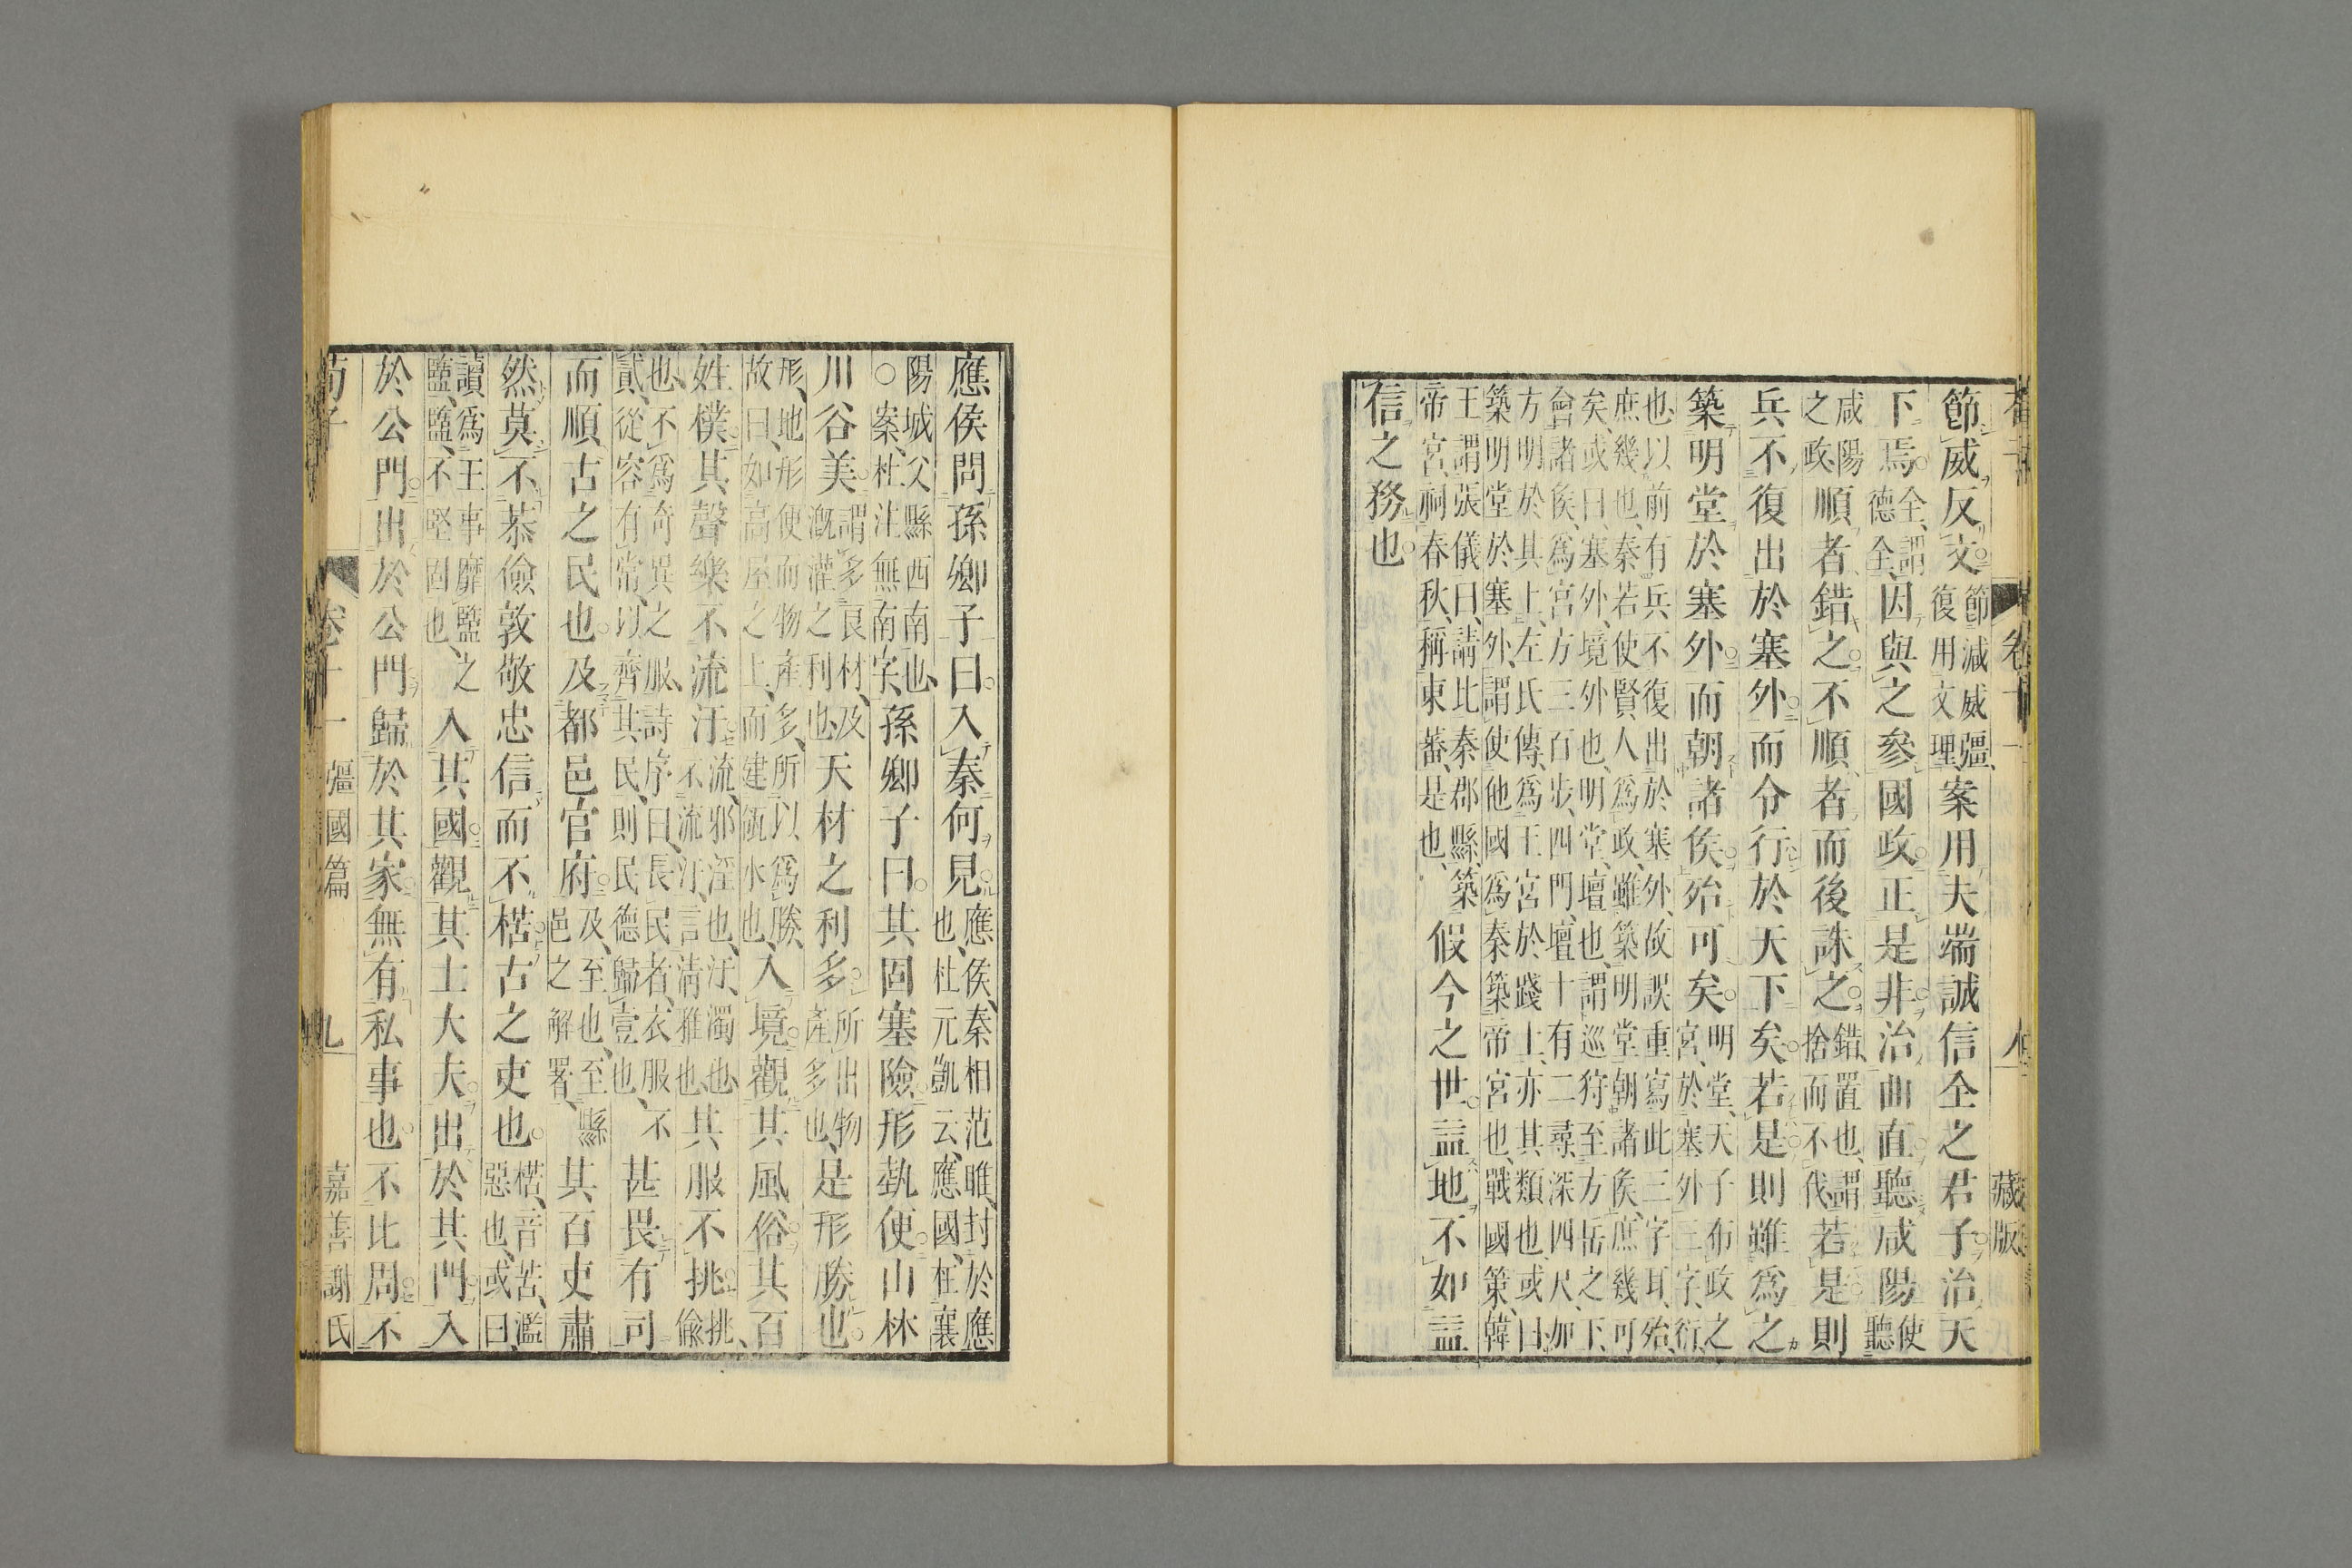 荀子　卷十一　八　藏版
節威反文節減威彊、復用文理、案用夫端誠信全之君子治天
下焉。全、謂德全、因與之參國政。正是非。治曲直。聽咸陽使聽
咸陽之政、順者錯之。不順者而後誅之。錯、置也、謂捨而不伐、若是則
兵不復出於塞外。而令行於天下矣。若是。則雖爲之
築明堂於塞外。而朝諸侯。殆可矣。明堂、天子布政之宮、於塞外三字、衍
也、以前有兵不復出於塞外、故誤重寫此三字耳、殆、
庶幾也、秦若使賢人爲政、雖築明堂朝諸侯、庶幾可
矣、或曰、塞外、境外也、明堂、壇也、謂巡狩至方岳之下、
會諸侯、爲宮方三百步、四門、壇十有二尋、深四尺、加
方明於其上、左氏傳、爲王宮於踐土、亦其類也、或曰、
築明堂於塞外、謂使他國爲秦築帝宮也、戰國策、韓
王謂張儀曰、請比秦郡縣、築帝宮、祠春秋、稱東蕃、是也、假今之世。益地不如益
信之務也。
應侯問孫卿子曰。入秦何見。應侯、秦相范睢、封於應也、杜元凱云、應國、在襄
陽城父縣西南也、○案、杜注無南字、孫卿子曰。其固塞險。形埶便。山林
川谷美。謂多良材、及漑灌之利也、天材之利多。所出物產多也、是形勝也。
形、地形便而物產多、所以爲勝、故曰、如高屋之上、而建瓴水也、入境。觀其風俗。其百
姓樸。其聲樂不流汙。流、邪淫也、汙、濁也、不流汙、言淸雅也、其服不挑。挑、偸
也、不爲奇異之服、詩序曰、長民者、衣服不貳、從容有常、以齊其民、則民德歸壹也、甚畏有司
而順。古之民也。及都邑官府。及、至也、至縣邑之解署、其百吏肅
然。莫不恭儉敦敬忠信而不楛。古之吏也。楛、音苦、濫惡也、或曰、
讀爲王事靡盬之盬、盬、不堅固也、入其國。觀其士大夫。出於其門。入
於公門。出於公門。歸於其家。無有私事也。不比周。不
荀子　卷十一　彊國篇　九　嘉善謝氏